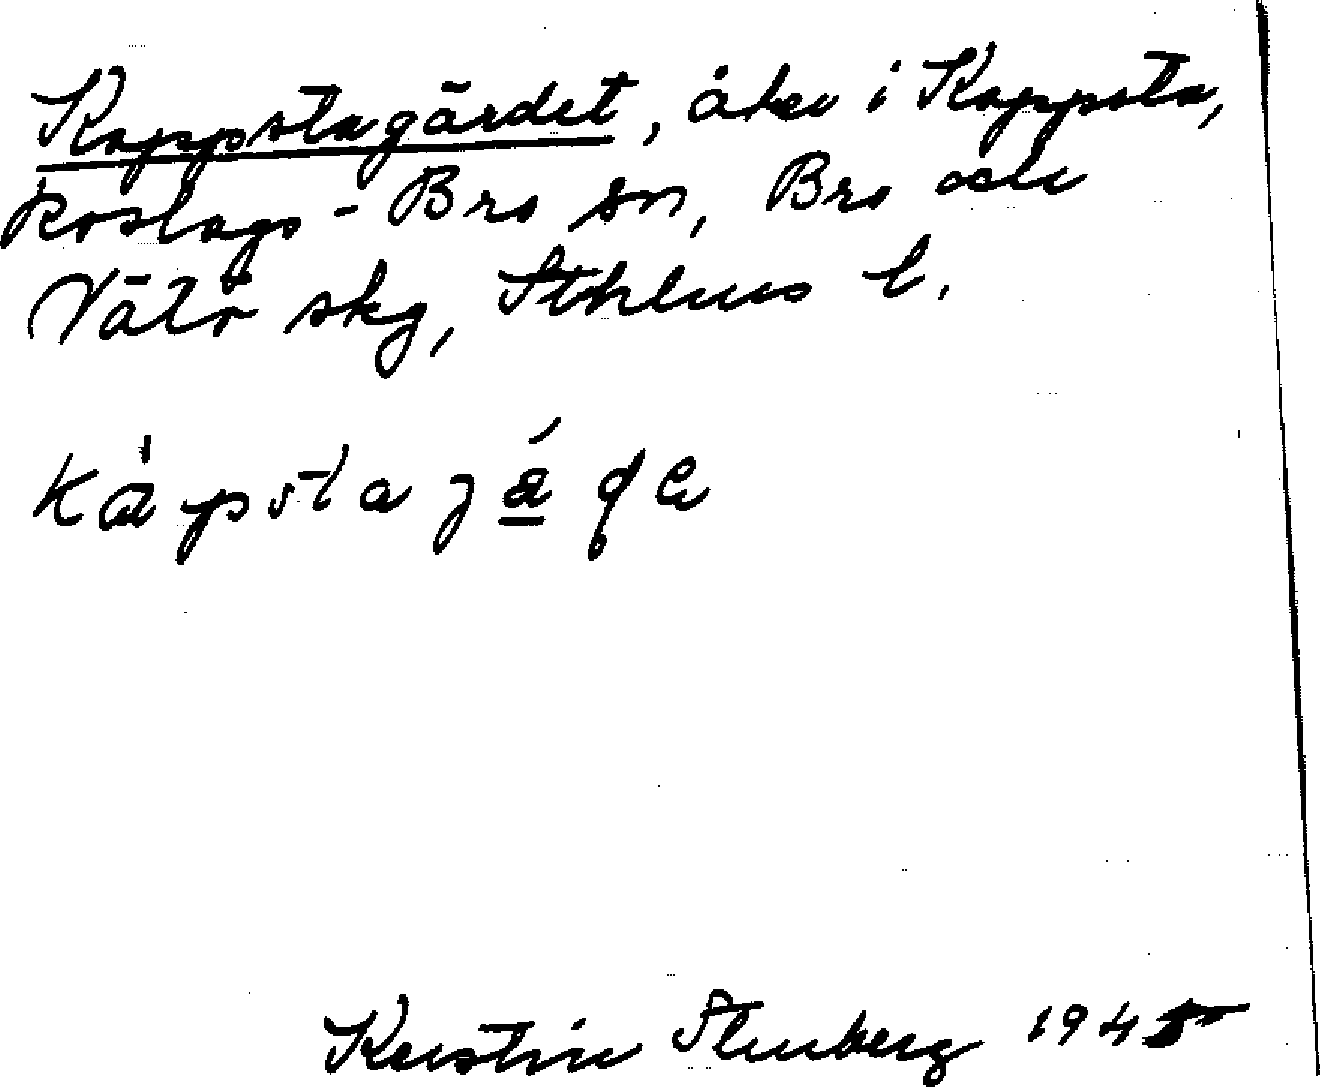 Kappstagärdet, åker i Kappsta,
Roslags-Bro sn, Bro och
Vätö skg, Sthlms l.
Kerstin Stenberg 1945